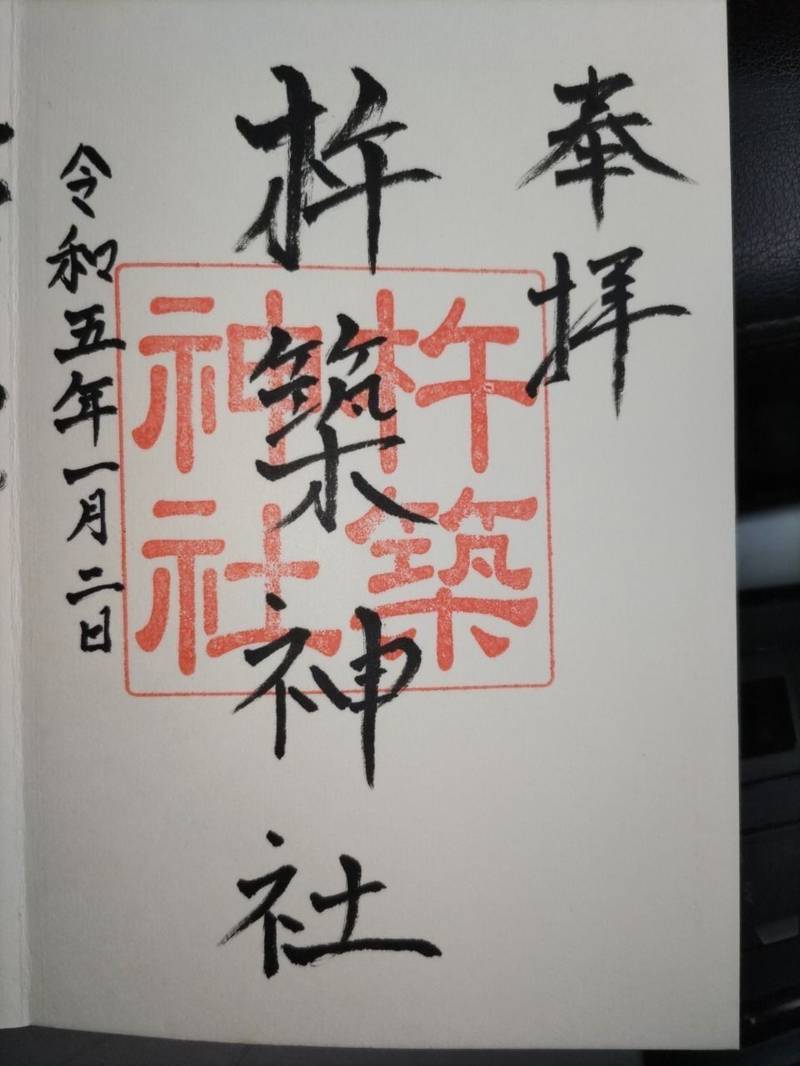 奉拝
杵築神社
杵築
神社
令和五年一月二日